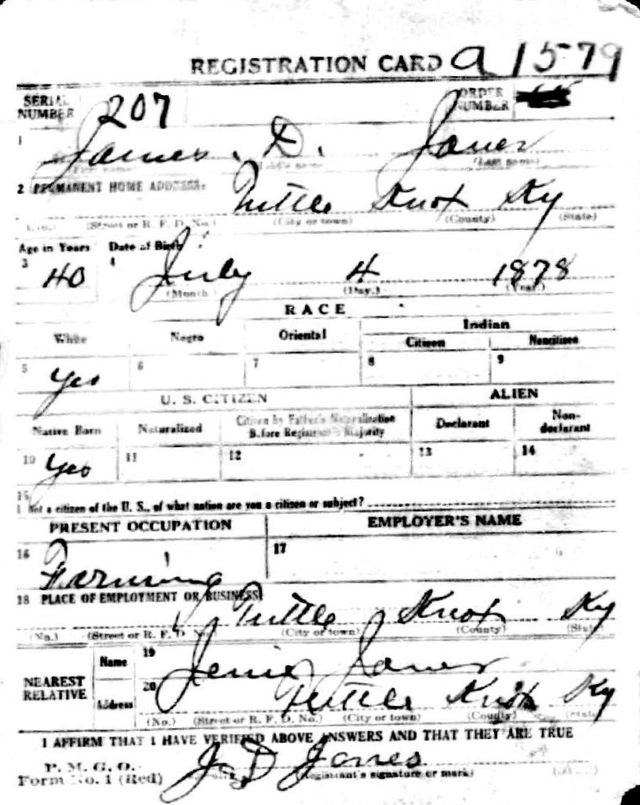 REGISTRATION CARD a 1579
SERIAL NUMBER 207 ORDER NUMBER
1 James. D. Jones
(First name) (Middle name) (Last name)
2 PERMANENT HOME ADDRESS:
Tuttle Knox Ky
(No.) (Street or R. F. D. No.) (City or town) (County) (State)
Age in Years Date of Birth
3 40 4 July 4 1878
(Month.) (Day.) (Year.)
RACE
White Negro Oriental Indian
Citizen Noncitizen
5 Yes 6 7 8 9
U. S. CITIZEN ALIEN
Native Born Naturalized Citizen by Father's Naturalization Before Registrant's Majority Declarant Non-declarant
10 Yes 11 12 13 14
15
If not a citizen of the U. S., of what nation are you a citizen or subject?
PRESENT OCCUPATION EMPLOYER'S NAME
16 Farming 17
18 PLACE OF EMPLOYMENT OR BUSINESS:
Tuttle Knox Ky
(No.) (Street or R. F. D. No.) (City or town) (County) (State)
NEAREST RELATIVE Name 19 Jones
Address 20 Tuttle Knox Ky
(No.) (Street or R. F. D. No.) (City or town) (County) (State)
I AFFIRM THAT I HAVE VERIFIED ABOVE ANSWERS AND THAT THEY ARE TRUE
P. M. G. O.
Form No. 1 (Red) J D Jones
(Registrant's signature or mark)